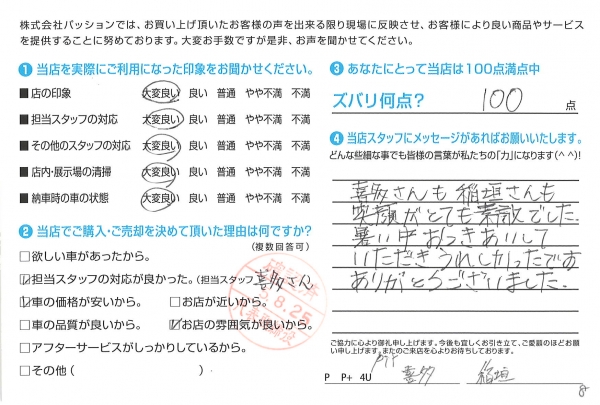 株式会社パッションでは、お買い上げ頂いたお客様の声を出来る限り現場に反映させ、お客様により良い商品やサービス
を提供することに努めております。大変お手数ですが是非、お声を聞かせてください。
1 当店を実際にご利用になった印象をお聞かせください。
■店の印象 大変良い 良い 普通 やや不満 不満
■担当スタッフの対応 大変良い 良い 普通 やや不満 不満
■その他のスタッフの対応 大変良い 良い 普通 やや不満 不満
■店内・展示場の清掃 大変良い 良い 普通 やや不満 不満
■納車時の車の状態 大変良い 良い 普通 やや不満 不満
2 当店でご購入・ご売却を決めて頂いた理由は何ですか?
(複数回答可)
□欲しい車があったから。
☑担当スタッフの対応が良かった。(担当スタッフ 喜多さん
☑車の価格が安いから。 □お店が近いから。
□車の品質が良いから。 ☑お店の雰囲気が良いから。
□アフターサービスがしっかりしているから。
□その他( )
8.25
3 あなたにとって当店は100点満点中
ズバリ何点? 100 点
4 当店スタッフにメッセージがあればお願いいたします。
どんな些細な事でも皆様の言葉が私たちの「力」になります(^^)!
喜多さんも稲垣さんも
笑顔がとても素敵でした。
暑い中おつきあいして
いただきうれしかったです
ありがとうございました。
ご協力に心より御礼申し上げます。今後も宜しくお引き立て、ご愛顧のほどお願
い申し上げます。またのご来店を心よりお待ちしております。
P P+ 4U 喜多 稲垣